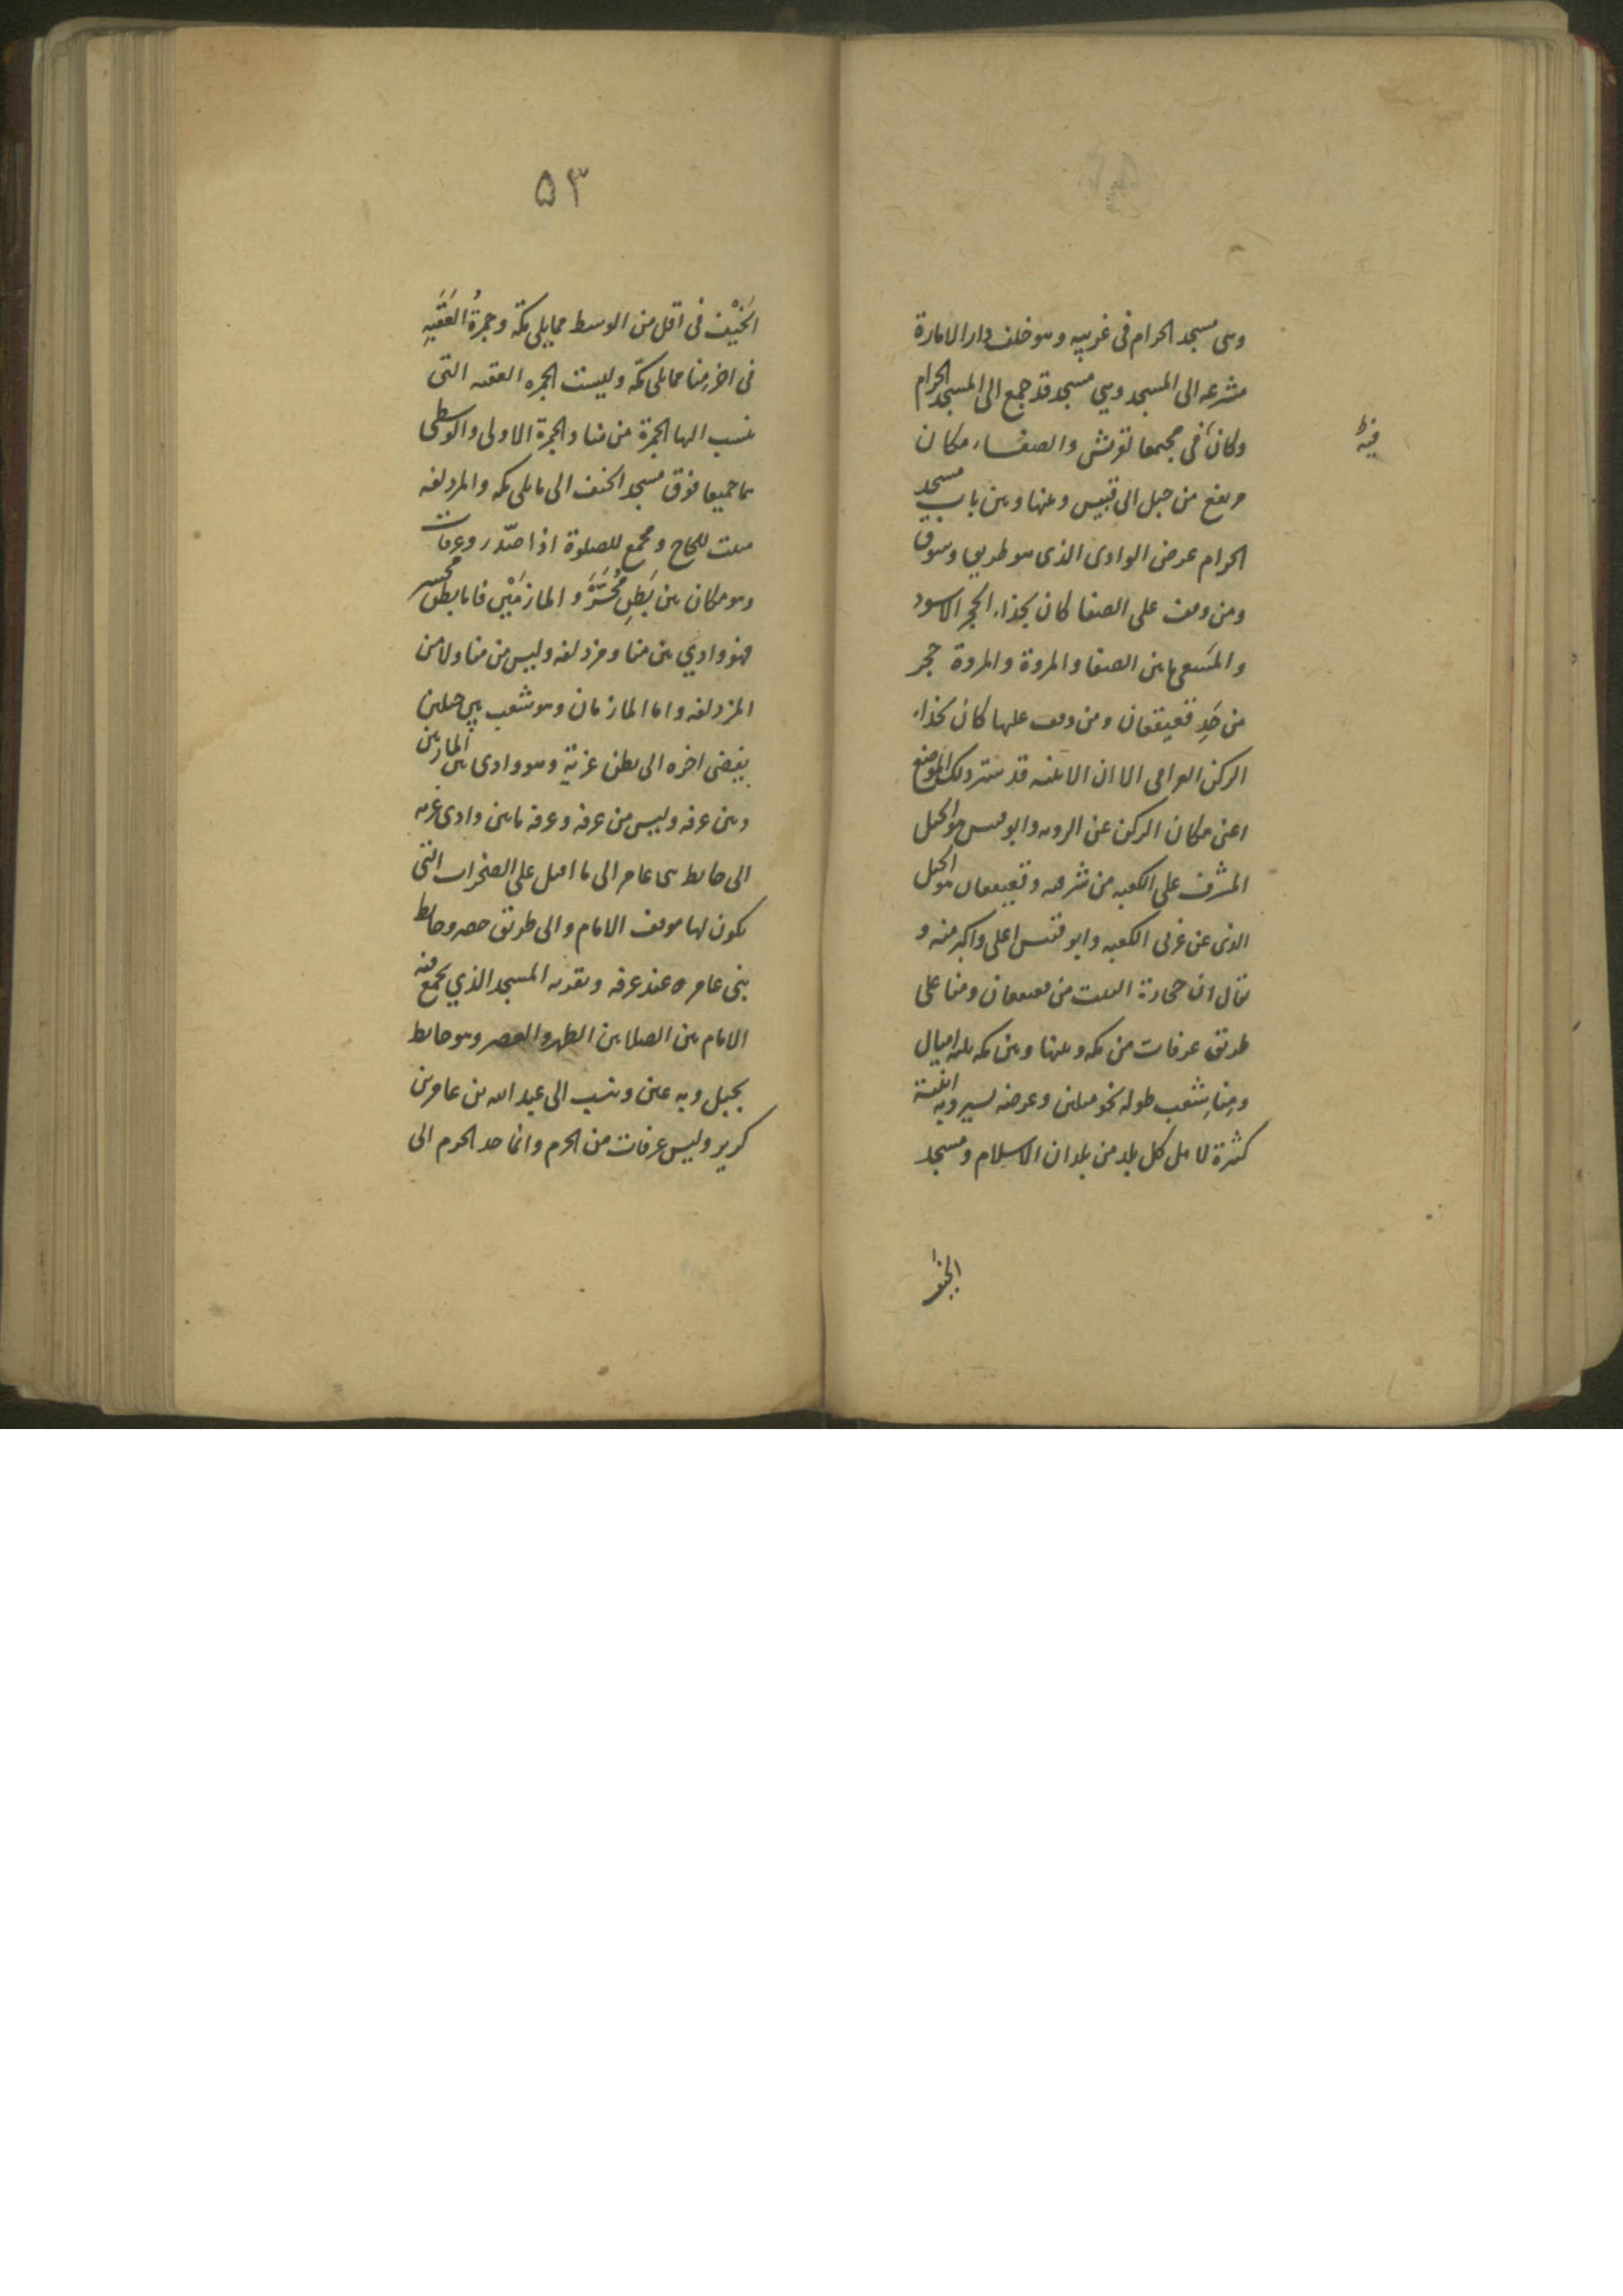 وسى مسجد الحرام فى غربيه وهو خلف دار الامارة
مشرعه الى المسجد وهي مسجد قد جمع الى المسجد الحرام
وكان فى مجمعا لقريش والصفا، مكان
فيه ظ
مرتفع من جبل ابى قبيس وبينها وبين باب مسجد
الحرام عرض الوادى الذى هو طريق وسوق
ومن وقف على الصفا كان بحذاء الحجر الاسود
والمسعى ما بين الصفا والمروة والمروة حجر
من حَدِ قعيقعان ومن وقف عليها كان بحذاء
الركن العراقى الا ان الابنيه قد سترت ذلك الموضع
اعنى مكان الركن عن الرويه وابو قبيس هو الجبل
المشرف على الكعبه من شرقيه وقعيقعان هو الجبل
الذى عن غربى الكعبه وابو قبيس اعلى واكبر منه و
يقال ان حجارة البيت من قعيقعان ومنا على
طريق عرفات من مكه وبينها وبين مكه ثلثه اميال
ومِنا شعب طوله نحو ميلين وعرضه يسير وبه ابنية
كثيرة لاهل كل بلد من بلدان الاسلام ومسجد
الخيف
۵۳
الخَيْف فى اقل من الوسط مما يلى مكة وجمرةُ العَقَبَةِ
فى اخر منا مما يلى مكة وليست الجمره العقبه التى
تنسب اليها الجمرة من منا والجمرة الاولى والوسطى
هما جميعا فوق مسجد الخيف الى ما يلى مكه والمزدلفه
مبيت للحاج ومجمع للصلوة اذا صدر وعرفات
وهو مكان بين بَطنِ مُحَسَّرَ والمازمَيْن فاما بطن محسر
فهو وادي بين منا ومزدلفه وليس من منا ولا من
المزدلفه واما المازمان وهو شعب بين جبلين
يفضى اخره الى بطن عرنة وهو وادى بين المازمين
وبين عرفه وليس من عرفه وعرفه ما بين وادى عرنه
الى حايط بنى عامر الى ما اقبل على الصخرات التى
يكون بها موقف الامام والى طريق حصن وحايط
بنى عامر ه عند عرفه وبقربه المسجد الذي يجمع فيه
الامام بين الصلاتين الظهر والعصر وهو حايط
بجبل وبه عين وينسب الى عبد الله بن عامر بن
كرير وليس عرفات من الحرم وانما حد الحرم الى